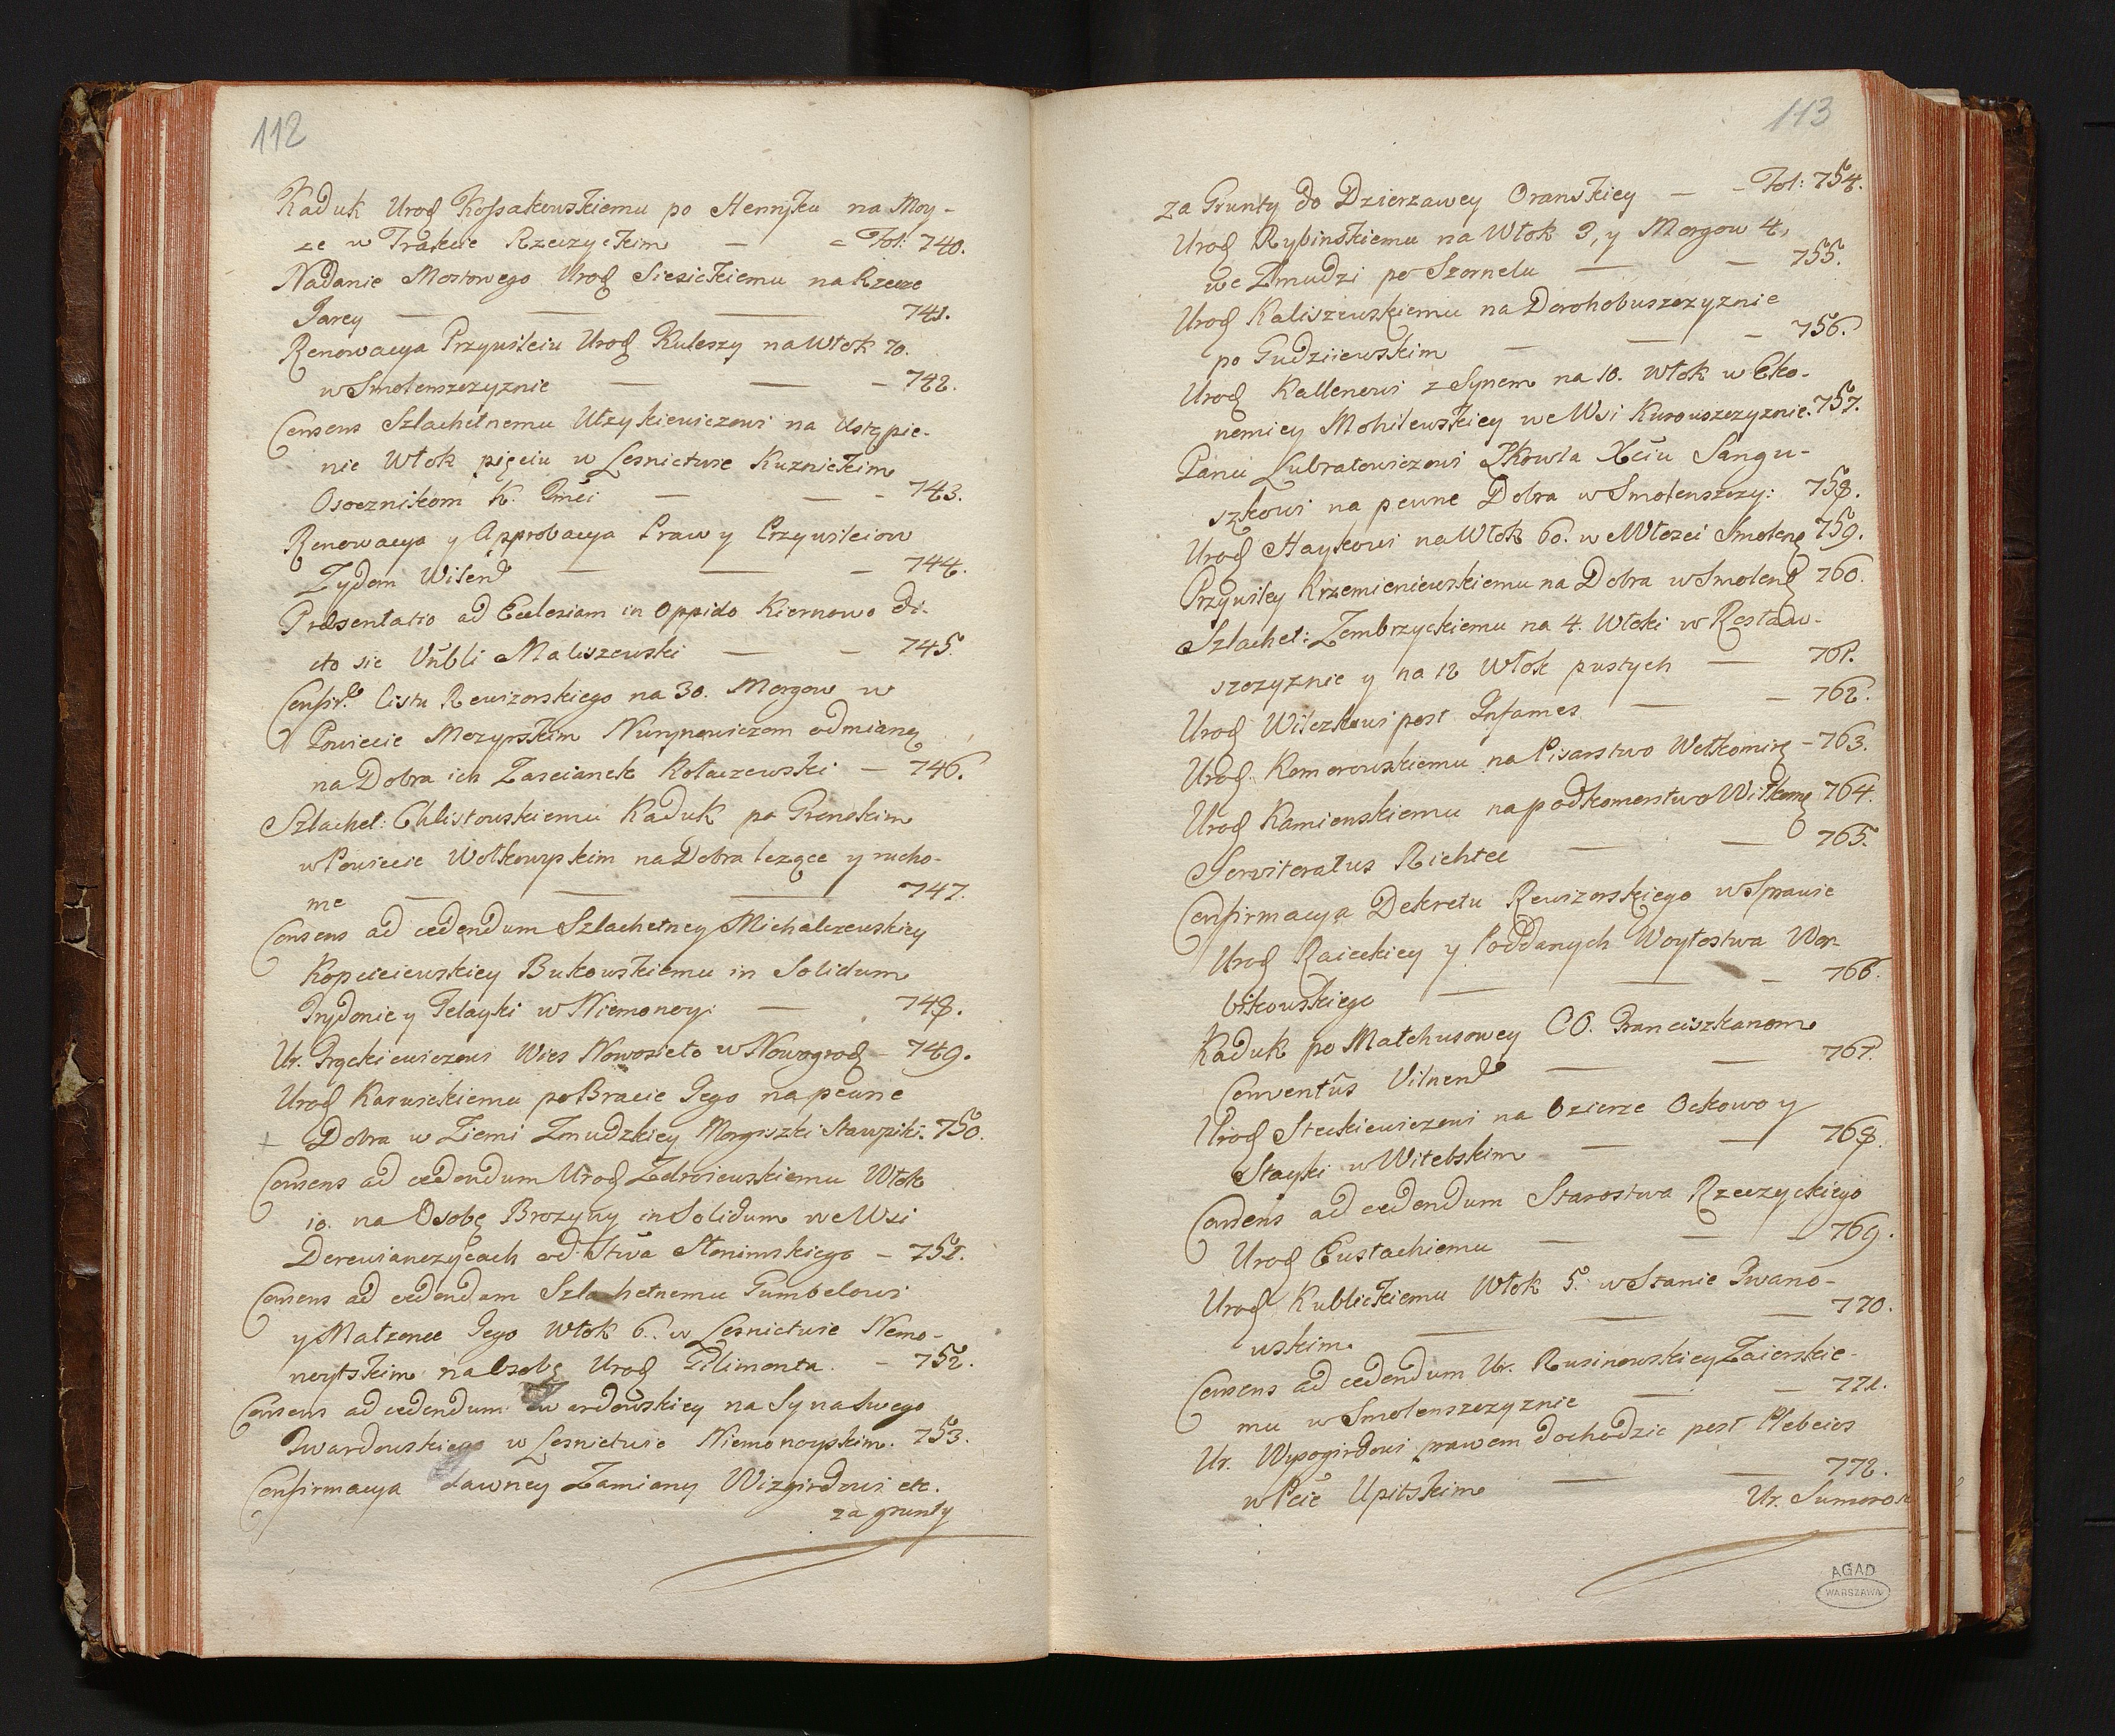 112
Kaduk Urod Kossakowskiemu po Henryku na Moy-
ze w Trakcie Rzeczyckim — = Fol: 740.
Nadanie Mostowego Urod Siesickiemu na Rzece
Jarey — — — 741.
Renowacya Przywileiu Urod Kuleszy na Włok 70.
w Smolenszczyznie — — - 742.
Consens Szlachetnemu Utzykiewiczowi na Ustąpie-
nie Włok pięciu w Lesnictwie Kuznickim
Osocznikom K. Jmći — — - 743.
Renowacya y Approbacya Praw y Przywileiow
Zydom Wilens — — - 744.
Præsentatio ad Ecclesiam in Oppido Kiernowo di-
cto sic Vnbli Maliszewski — - 745.
Confir. listu Rewizorskiego na 30. Morgow w
Powiecie Mozyrskim Nurynowiczom odmianą
na Dobra ich Zascianek Kołaczewski — 746.
Szlachet: Chlistowskiemu Kaduk po Gronskim
w Powiecie Wołkowyskim na Dobra lezące y rucho-
me — — — 747.
Consens ad cedendum Szlachetney Michalczewskiey
Kopciciewskiey Bukowskiemu in Solidum
Jnydonie y Pelayki w Niemonoy: — 748.
Ur. Frąckiewiczowi Wies Nowosieło w Nowogrod - 749.
Urod Karwickiemu po Bracie Jego na pewne
+ Dobra w Ziemi Zmudzkiey Morgiszki Stawpiki. 750.
Consens ad cedendum Urod Zdrojewskiemu Włok
10. na Osobę Brozyny in Solidum we Wsi
Derewianczycach od Stwa Słonimskiego - 751.
Consens ad cedendum Szlachetnemu Gumbelowi
y Małzonce Jego Włok 6. w Lesnictwie Nemo-
noytskim na Osobę Urod Giłimonta. - 752.
Consens ad cedendum Twardowskiey na Syna Swego
Twardowskiego w Lesnictwie Niemonoyskim. 753.
Confirmacya dawney Zamiany Wizgirdowi etc.
za grunty
113
za Grunty do Dzierzawey Oranskiey — - Fol: 754.
Urod Rybinskiemu na Włok 3, y Morgow 4,
we Zmudzi po Szornelu — — 755.
Urod Kaliszewskiemu na Dorohobuszczyznie
po Gudziiewskim — — - 756.
Urod Kallenowi z Synem na 10. Włok w Eko-
nomiey Mohilewskiey we Wsi Kurowszczyznie. 757.
Panu Lubratowiczowi Xciu Sangu-
szkowi na pewne Dobra w Smolenszczy: 758.
Urod Haykowi na Włok 60. w Włości Smolens 759.
Przywiley Krzemieniewskiemu na Dobra w Smolens 760.
Szlachet: Zembrzyckiemu na 4. Włoki w Rosław-
szczyznie y na 12 Włok pustych — 761.
Urod Wilczkowi post Infames — - 762.
Urod Komorowskiemu na Pisarstwo Wełkomirs - 763.
Urod Kamienskiemu na podkomorstwo Wiłkoms 764.
Servitoratus Richter — — 765.
Confirmacya Dekretu Rewizorskiego w Sprawie
Urod Raieckiey y Poddanych Woytostwa Wor-
bikowskiego — — - 766.
Kaduk po Małchusowey OO. Franciszkanom
Conventûs Vilnens — — 767.
Urod Steckiewiczowi na Ozierze Ockowo y
Stayki w Witebskim — — 768.
Consens ad cedendum Starostwa Rzeczyckiego
Urod Eustachiemu — — - 769.
Urod Kublickiemu Włok 5. w Stanie Jwano-
wskim — — — 770.
Consens ad cedendum Ur. Rusinowskiey Zaierskie-
mu w Smolenszczyznie — - 771.
Ur. Wysogirdowi prawem dochodzic post Plebeios
w Pcie Upitskim — — 772.
Ur. Sumorok
AGAD
WARSZAWA